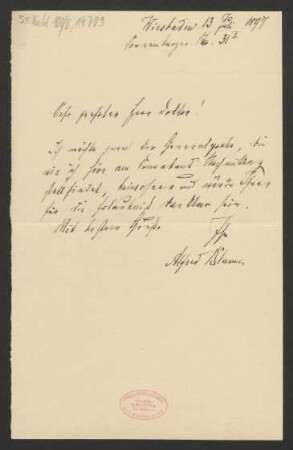 Wiesbaden 13 1897
Sonnenberger Str. 31
Sehr geehrter Herr Doktor!
Ich möchte gern der Generalprobe, die
wie ich höre am Sonnabend Nachmittag
stattfindet, beiwohnen und würde Ihnen
für die Erlaubnis dankbar sein.
Mit besten Grüßen
Ihr
Alfred